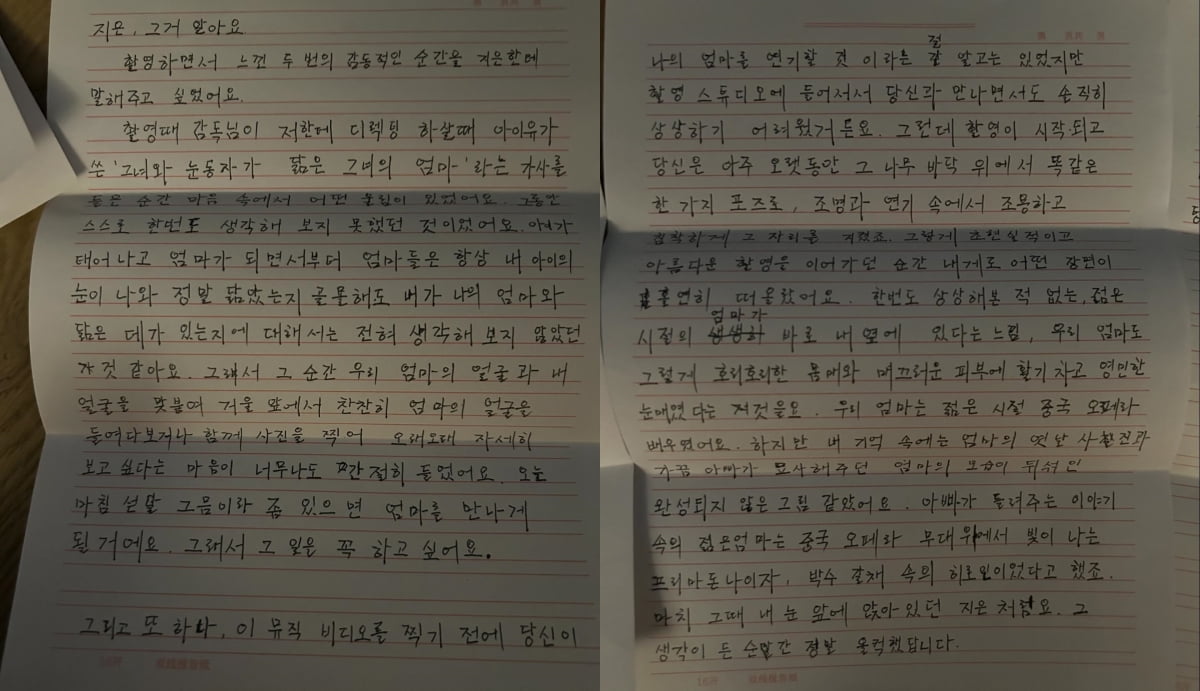 지은, 그거 알아요
촬영하면서 느낀 두 번의 감동적인 순간을 지은한테
말해주고 싶었어요.
촬영때 감독님이 저한테 디렉팅 하실때 아이유가
쓴 '그녀와 눈동자가 닮은 그녀의 엄마' 라는 가사를
들은 순간 마음 속에서 어떤 울림이 있었어요. 그동안
스스로 한번도 생각해 보지 못했던 것이었어요. 아이가
태어나고 엄마가 되면서부터 엄마들은 항상 내 아이의
눈이 나와 정말 닮았는지 골몰해도 내가 나의 엄마와
닮은 데가 있는지에 대해서는 전혀 생각해 보지 않았던
것 같아요. 그래서 그 순간 우리 엄마의 얼굴과 내
얼굴을 맞붙여 거울 앞에서 찬찬히 엄마의 얼굴을
들여다보거나 함께 사진을 찍어 오래오래 자세히
보고 싶다는 마음이 너무나도 간절히 들었어요. 오늘
마침 섣달 그믐이라 좀 있으면 엄마를 만나게
될 거예요. 그래서 그 일을 꼭 하고 싶어요.
그리고 또 하나, 이 뮤직 비디오를 찍기 전에 당신이
나의 엄마를 연기할 것 이라는 걸 잘 알고는 있었지만
촬영 스튜디오에 들어서서 당신과 만나면서도 솔직히
상상하기 어려웠거든요. 그런데 촬영이 시작되고
당신은 아주 오랫동안 그 나무 바닥 위에서 똑같은
한 가지 포즈로, 조명과 연기 속에서 조용하고
침착하게 그 자리를 지켰죠. 그렇게 초현실적이고
아름다운 촬영을 이어가던 순간 내게로 어떤 장면이
홀연히 떠올랐어요. 한번도 상상해본 적 없는, 젊은
시절의 엄마가 바로 내 옆에 있다는 느낌, 우리 엄마도
그렇게 호리호리한 몸매와 매끄러운 피부에 활기차고 영민한
눈매였다는 것을요. 우리 엄마는 젊은 시절 중국 오페라
배우였어요. 하지만 내 기억 속에는 엄마의 옛날 사진과
가끔 아빠가 묘사해주던 엄마의 모습이 뒤섞인
완성되지 않은 그림 같았어요. 아빠가 들려주는 이야기
속의 젊은 엄마는 중국 오페라 무대 위에서 빛이 나는
프리마돈나이자, 박수 갈채 속의 히로인이었다고 했죠.
마치 그때 내 눈 앞에 앉아 있던 지은 처럼요. 그
생각이 든 순간 정말 울컥했답니다.